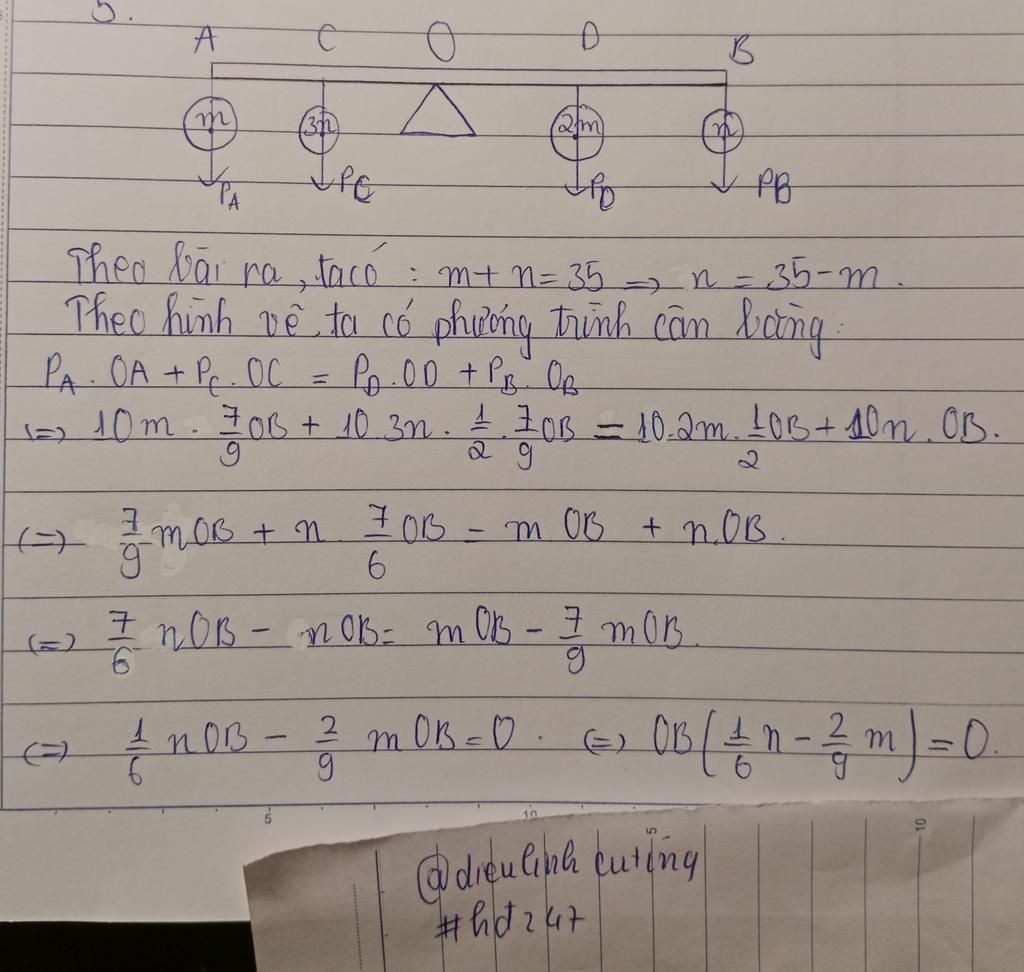 5.
A C O D B
m 3n 2m n
P_A P_C P_D P_B
Theo bài ra, ta có : m + n = 35 => n = 35 - m.
Theo hình vẽ, ta có phương trình cân bằng:
P_A . OA + P_C . OC = P_D . OD + P_B . O_B
<=> 10m . 7/9 OB + 10.3n . 1/2 . 7/9 OB = 10.2m . 1/2 OB + 10n . OB.
<=> 7/9 m OB + n . 7/6 OB = m OB + n.OB.
<=> 7/6 n OB - n OB = m OB - 7/9 m OB.
<=> 1/6 n OB - 2/9 m OB = 0 . <=> OB(1/6 n - 2/9 m) = 0.
5 10 5 10
@dieulinh cuting
#hđ247